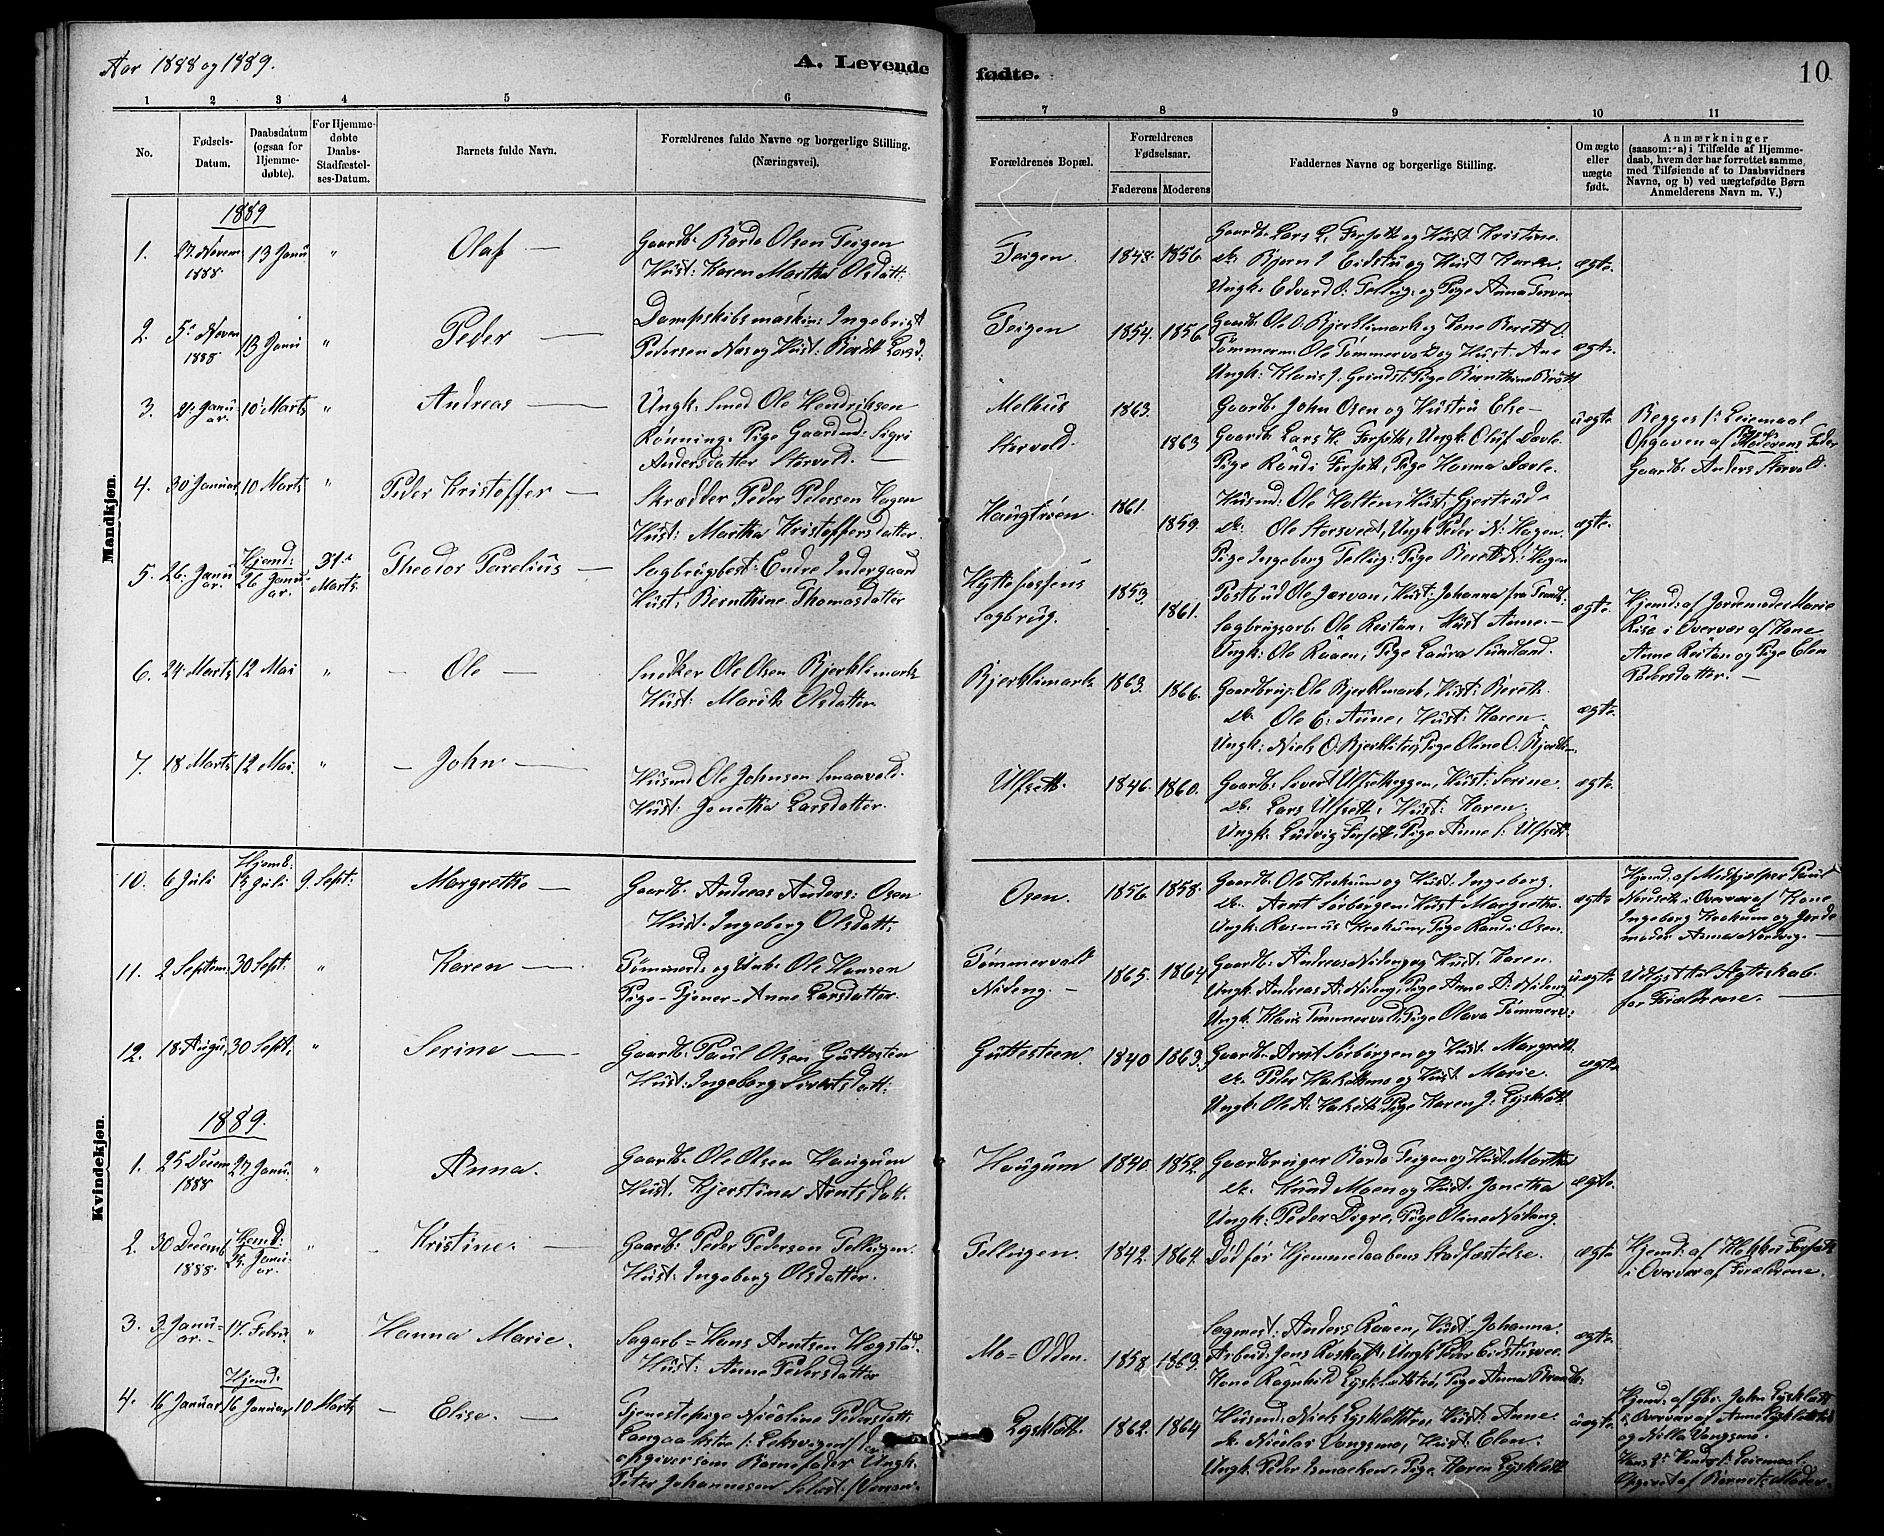 Aar 1888 og 1889.
A. Levende
fødte.
10
1 2 3 4 5 6 7 8 9 10 11
No.
Fødsels-
Datum.
Daabsdatum
(ogsaa for
Hjemme-
døbte).
For Hjemme-
døbte
Daabs-
Stadfæstel-
ses-Datum.
Barnets fulde Navn.
Forældrenes fulde Navne og borgerlige Stilling.
(Næringsvei).
Forældrenes Bopæl.
Forældrenes
Fødselsaar.
Faderens Moderens
Faddernes Navne og borgerlige Stilling.
Om ægte
eller
uægte
født.
Anmærkninger
(saasom: a) i Tilfælde af Hjemme-
daab, hvem der har forrettet samme,
med Tilføiende af to Daabsvidners
Navne, og b) ved uægtefødte Børn
Anmelderens Navn m. V.)
Mandkjøn.
1889
1. 27. Novem 1888. 13 Janu " Olaf —
Gaardb: Bardo Olsen Teigen
Hust: Karen Martha Olsdatt:
Teigen. 1848. 1856.
Gaardb: Lars L. Forseth og Hust Kristine.
do. Bjørn J Eidstu og Hust Karen.
Ungk: Edvard O: Tellvig. og Pige Anna
ægte.
2. 5. Novem 1888 13 Janu " Peder —
Dampskibsmaskin: Ingebrigt
Pedersen Nas og Hust: Berett Larsd.
Teigen 1854. 1856.
Gaardb: Ole O. Bjerklimark og Kone Berett O.
Tømmerm: Ole Tømmervold og Hust. Ane
Ungk: Klaus J. Grindst: Pige Bernthine
ægte.
3. 21. Janu ar. 10' Marts " Andreas —
Ungk: Smed Ole Hendriksen
Rönning. Pige Gaardmd: Sigri
Andersdatter Storvold. —
Melhus
Storvold. 1863. 1863
Gaardb: John Osen og Hustru Else —
Gaardb Lars K. Forseth, Ungk. Oluf Davle.
Pige Randi Forseth, Pige Hanna Davle.
uægte
Begges 1' Leiemaal
Opgaven af Moderens Fader
Gaardb: Anders Storvold.
4. 30 Januar, 10 Marts " Peder Kristoffer —
Skrædder Peder Pedersen Hagen
Hust: Martha Kristoffersdatter.
Haugtrøen. 1861. 1859.
Husmd: Ole Holtem, Hust. Gjertrud
do. Ole Storsved, Ungk Peder N: Hagen.
Pige Ingeborg Tellvig. Pige Berett N: Hagen
ægte.
5. 26. Janu ar. Hjemd: 26 Janu ar. 31. Marts. Theodor Parelius —
Sagbrugbest: Endre Indergaard
Hust: Bernthine Thomasdatter
Hyttefossens
Sagbrug. 1853. 1861.
Postbud Ole Jærvan, Hust: Johanna fra Trondh:
Sagbrugsarb. Ole Reitan, Hust Anne. —
Ungk: Ole Raaen, Pige Laura Sundland.
ægte.
Hjemd: af Jordemoder Marie
Riise i Overvær af Kone
Anne Reitan og Pige Elen
Pedersdatter. —
6. 24 Marts 12 Mai " — Ole —
Snedker Ole Olsen Bjerklimark
Hust: Marith Olsdatter.
Bjerklimark 1863. 1866.
Gaardbrug: Ole Bjerklimark, Hust: Bereth.
do. Ole E. Aune, Hust: Karen.
Ungk: Niels O. Bjerklitrø, Pige Oline O. Bjerkl —
ægte.
7. 18 Marts 12 Mai. " — John —
Husmd Ole Johnsen Smaavold.
Hust: Jonetha Larsdatter.
Ulfseth. 1846. 1860.
Gaardb: Sivert Ulfsetheggen, Hust: Serine.
do. Lars Ulfseth, Hust: Karen.
Ungk: Ludvig Forseth, Pige Anne S: Ulfseth.
ægte.
Kvindekjøn.
10. 6 Juli Hjemd: 13 Juli 9. Sept: Margrethe —
Gaardb: Andreas Anders: Osen
Hust: Ingeborg Olsdatt:
Osen. 1856. 1858.
Gaardb: Ole Krokum og Hust: Ingeborg.
do. Arnt Sørborgen, Hust Margrethe.
Ungk: Rasmus Krokum, Pige Randi Osen.
ægte
Hjemd: af Medhjælper
i Overvær af Kone
Ingeborg Krokum og Jorde
moder Anna Nordvig. —
11. 2 Septem. 30 Sept: " Karen —
Tømmerd: og Ungk: Ole Hansen
Pige — Tjener — Anne Larsdatter.
Tømmervold
Nideng. — 1865. 1864
Gaardb: Andreas Nideng og Hust Karen.
Ungk: Andreas A: Nideng, Pige Anne A: Nideng
Ungk: Klaus Tømmervold, Pige Olava Tømmerv:
uægte
Udlyst til Ægteskab
for Forældrene. —
12. 18. Augu, 30 Sept: " Serine —
Gaardb: Paul Olsen Guttesteen
Hust: Ingeborg Sivertsdatt:
Guttesteen. 1840 1863.
Gaardb: Arnt Sørborgen og Hust. Margreth.
do. Peder og Hust: Marie.
Ungk: Ole A: Pige Karen J: Lysklæt
ægte
1889.
1. 25 Decem 1888 27 Janu. " Anna.
Gaardb: Ole Olsen Haugum
Hust: Kjerstina Arntsdatt.
Haugum 1840. 1852.
Gaardbruger Bardo Teigen og Hust: Martha
do. Knud Moen og Hust: Jonetha
Ungk: Peder Digre, Pige Oline Nideng.
ægte.
2. 30 Decemb 1888 Hjemd: 25. Janu ar. " — Kristine. —
Gaardb: Peder Pedersen Tellvigen.
Hust: Ingeborg Olsdatter.
Tellvigen. 1842. 1864.
Død før Hjemmedaabens Stadfæstelse.
ægte
Hjemd: af Forseth
i Overvær af Forældrene.
3. 3. Janu= ar. — 17. Febru. " Hanna Marie.
Sagarb= Hans Arntsen Hægstad.
Hust: Anne Pedersdatter
Mo=Olden. 1858. 1863.
Sagmest: Anders Raaen, Hust: Johanna.
Arbeid: Jens Ungk Peder Eidstuvee.
Kone Ragnhild Lysklættrø, Pige Anna
ægte.
4. 16 Januar Hjemd: 16 Januar, 10 Marts — Elise. —
Tjenestepige Nicoline Pedersdatt:
opgiver som Barnefader Ungk.
Peter Johannesen
Lysklætt. 1862. 1864
Husmd: Niels Lysklættrø, Hust: Anne.
do. Nicolai Vangsmo, Hust: Elen.
Ungk: Peder Pige Karen Lysklætt
uægte.
Hjemd. af Gbr. John Lysklætt
i Overvær af Anne Lysklætt
og Nilla Vangsmo.
Leiemaal.
Opgivet af Barnets Moder.